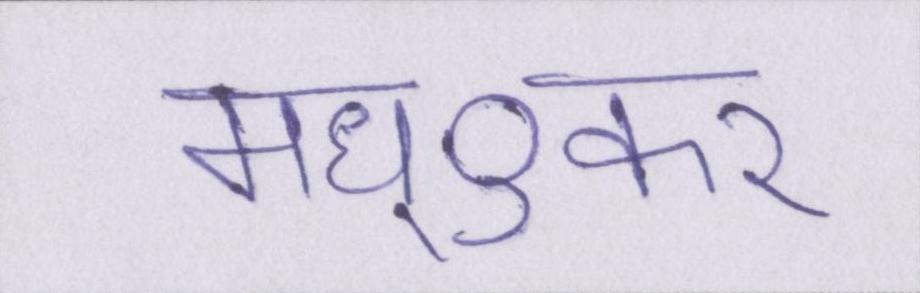 मध्ुकर